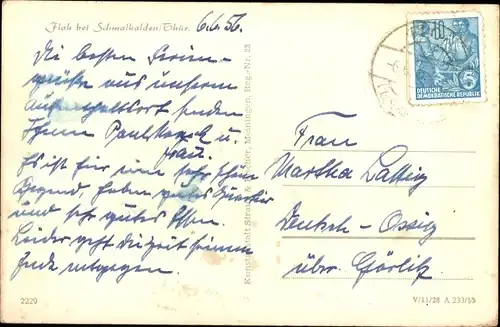 Floh bei Schmalkalden/Thür.
6.6.56.
Die besten Ferien-
grüße aus unserem
Aufenthaltsort senden
Ihnen Paul u.
Frau.
Es ist hier eine sehr schöne
Gegend, haben gutes Quartier
und sehr gutes Essen.
Leider geht die Zeit seinem
Ende entgegen.
2229
Kunstanstalt Straub & Fischer, Meiningen, Reg.-Nr. 23
10
5
DEUTSCHE
DEMOKRATISCHE REPUBLIK
Frau
Martha Lattig
Deutsch-Ossig
über Görlitz
V/11/28 A 233/55